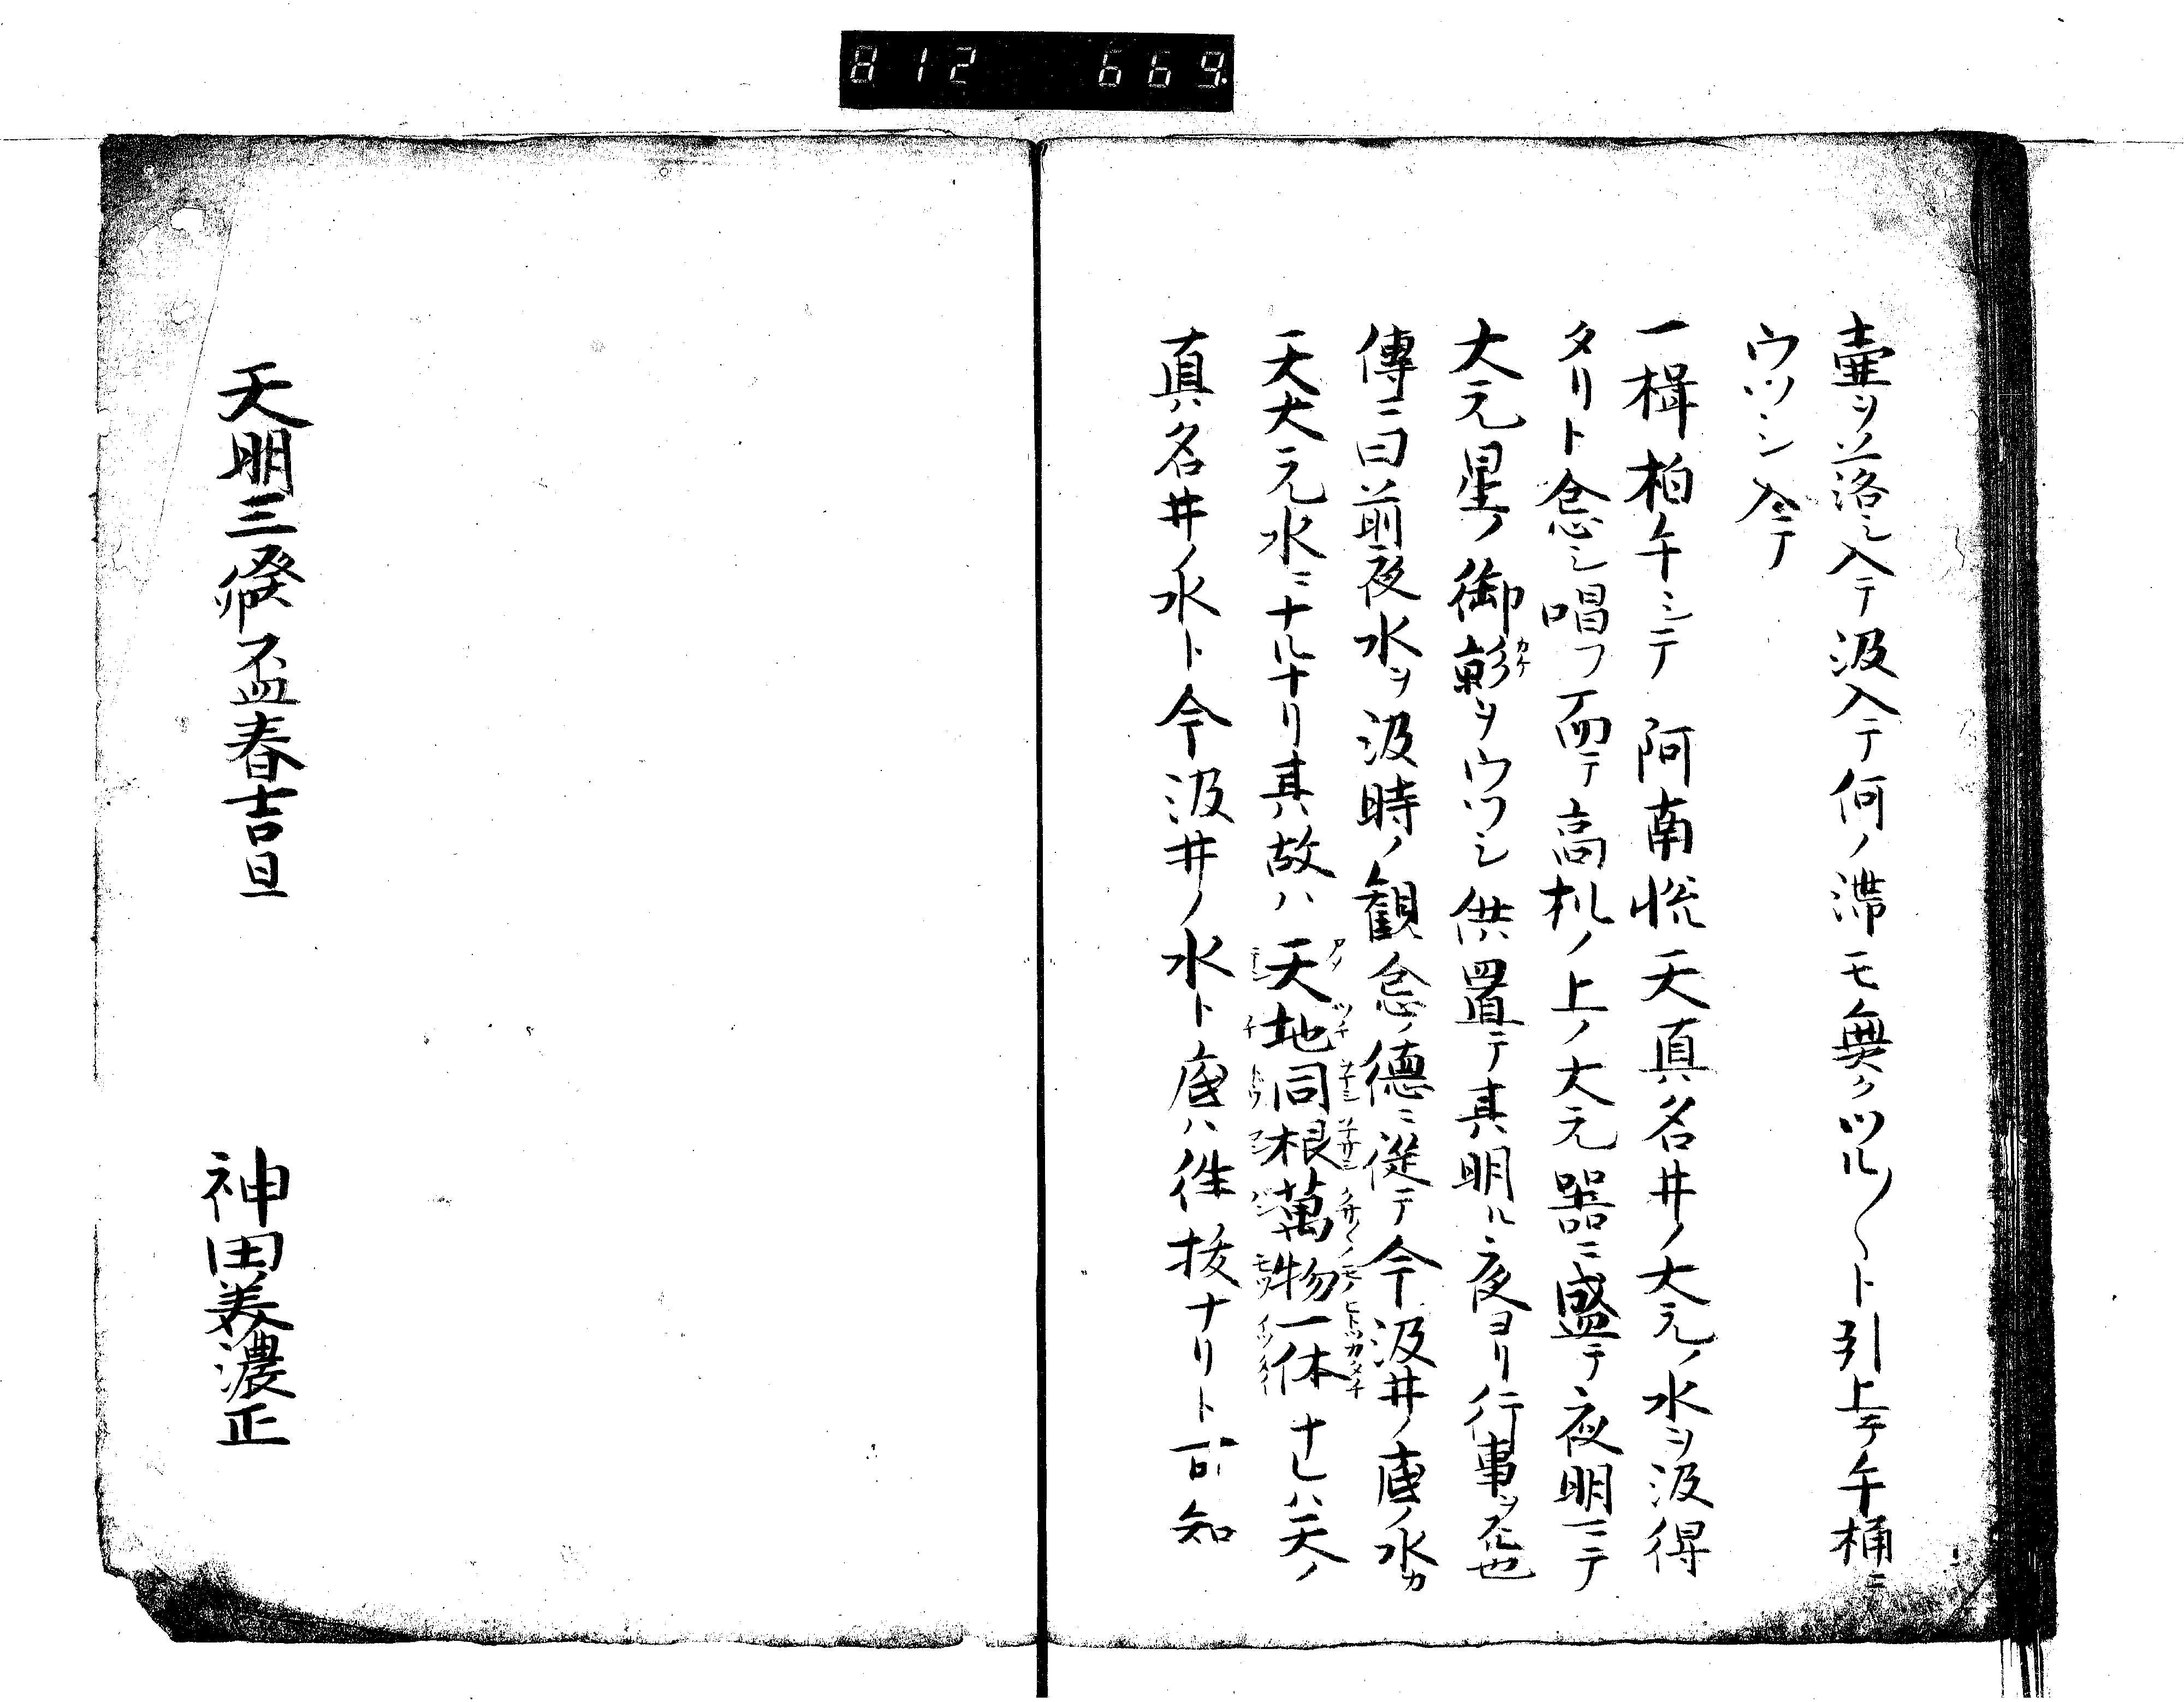 812 669.
壷ヲ並落シ入テ汲入テ何ノ滞モ無クツル〱ト引上テ午桶ニ
ウツシ入テ
一楫柏午シテ 阿南恱天真名井ノ大元ノ水ヲ汲得
タリト念シ唱フ而テ高机ノ上ノ大元器ニ盛テ夜明ニテ
大元星ノ御影ヲウツシ供置テ其明ル夜ヨリ行事ヲスル也
傳ニ曰前夜水ヲ汲時ノ観念ノ徳ニ従テ今汲井ノ底ノ水カ
天大元水ニナルナリ其故ハ天地同根萬物一体ナレハ天ノ
真名井ノ水ト今汲井ノ水ト底ハ徃拔ナリト可知
天明三癸卯孟春吉旦
神田美濃正